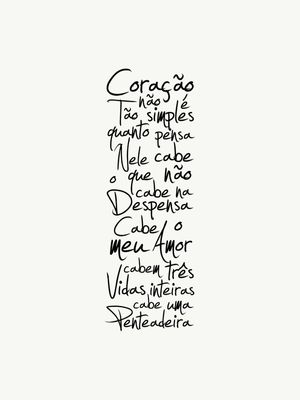 Coração
não é
Tão simples
quanto pensa
Nele cabe
o que não
cabe na
Despensa
Cabe o
meu Amor
cabem três
Vidas inteiras
cabe uma
Penteadeira